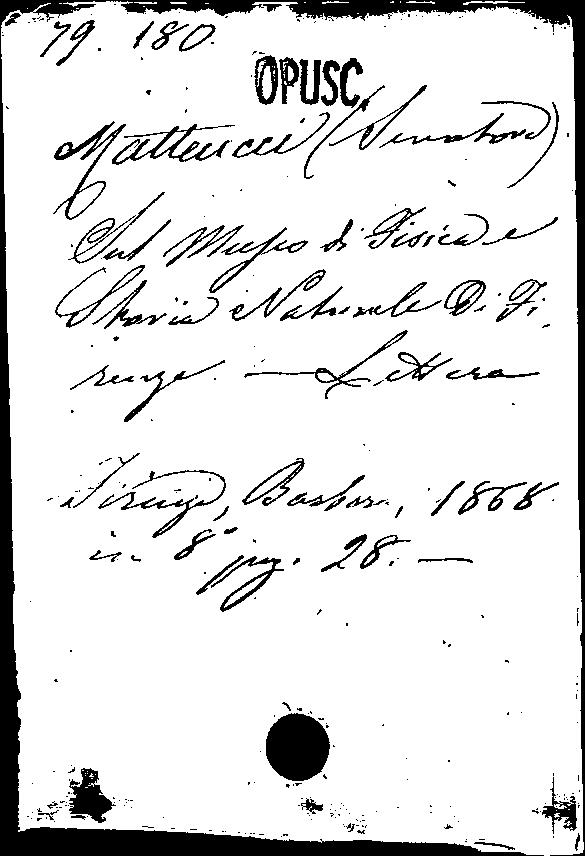 79. 180.
OPUSC.
Matteucci (Senatore).
Sul Museo di Fisica e
Storia Naturale Di Fi-
renze. — Lettera
Firenze, Barbera, 1868
in 8° pag. 28. —